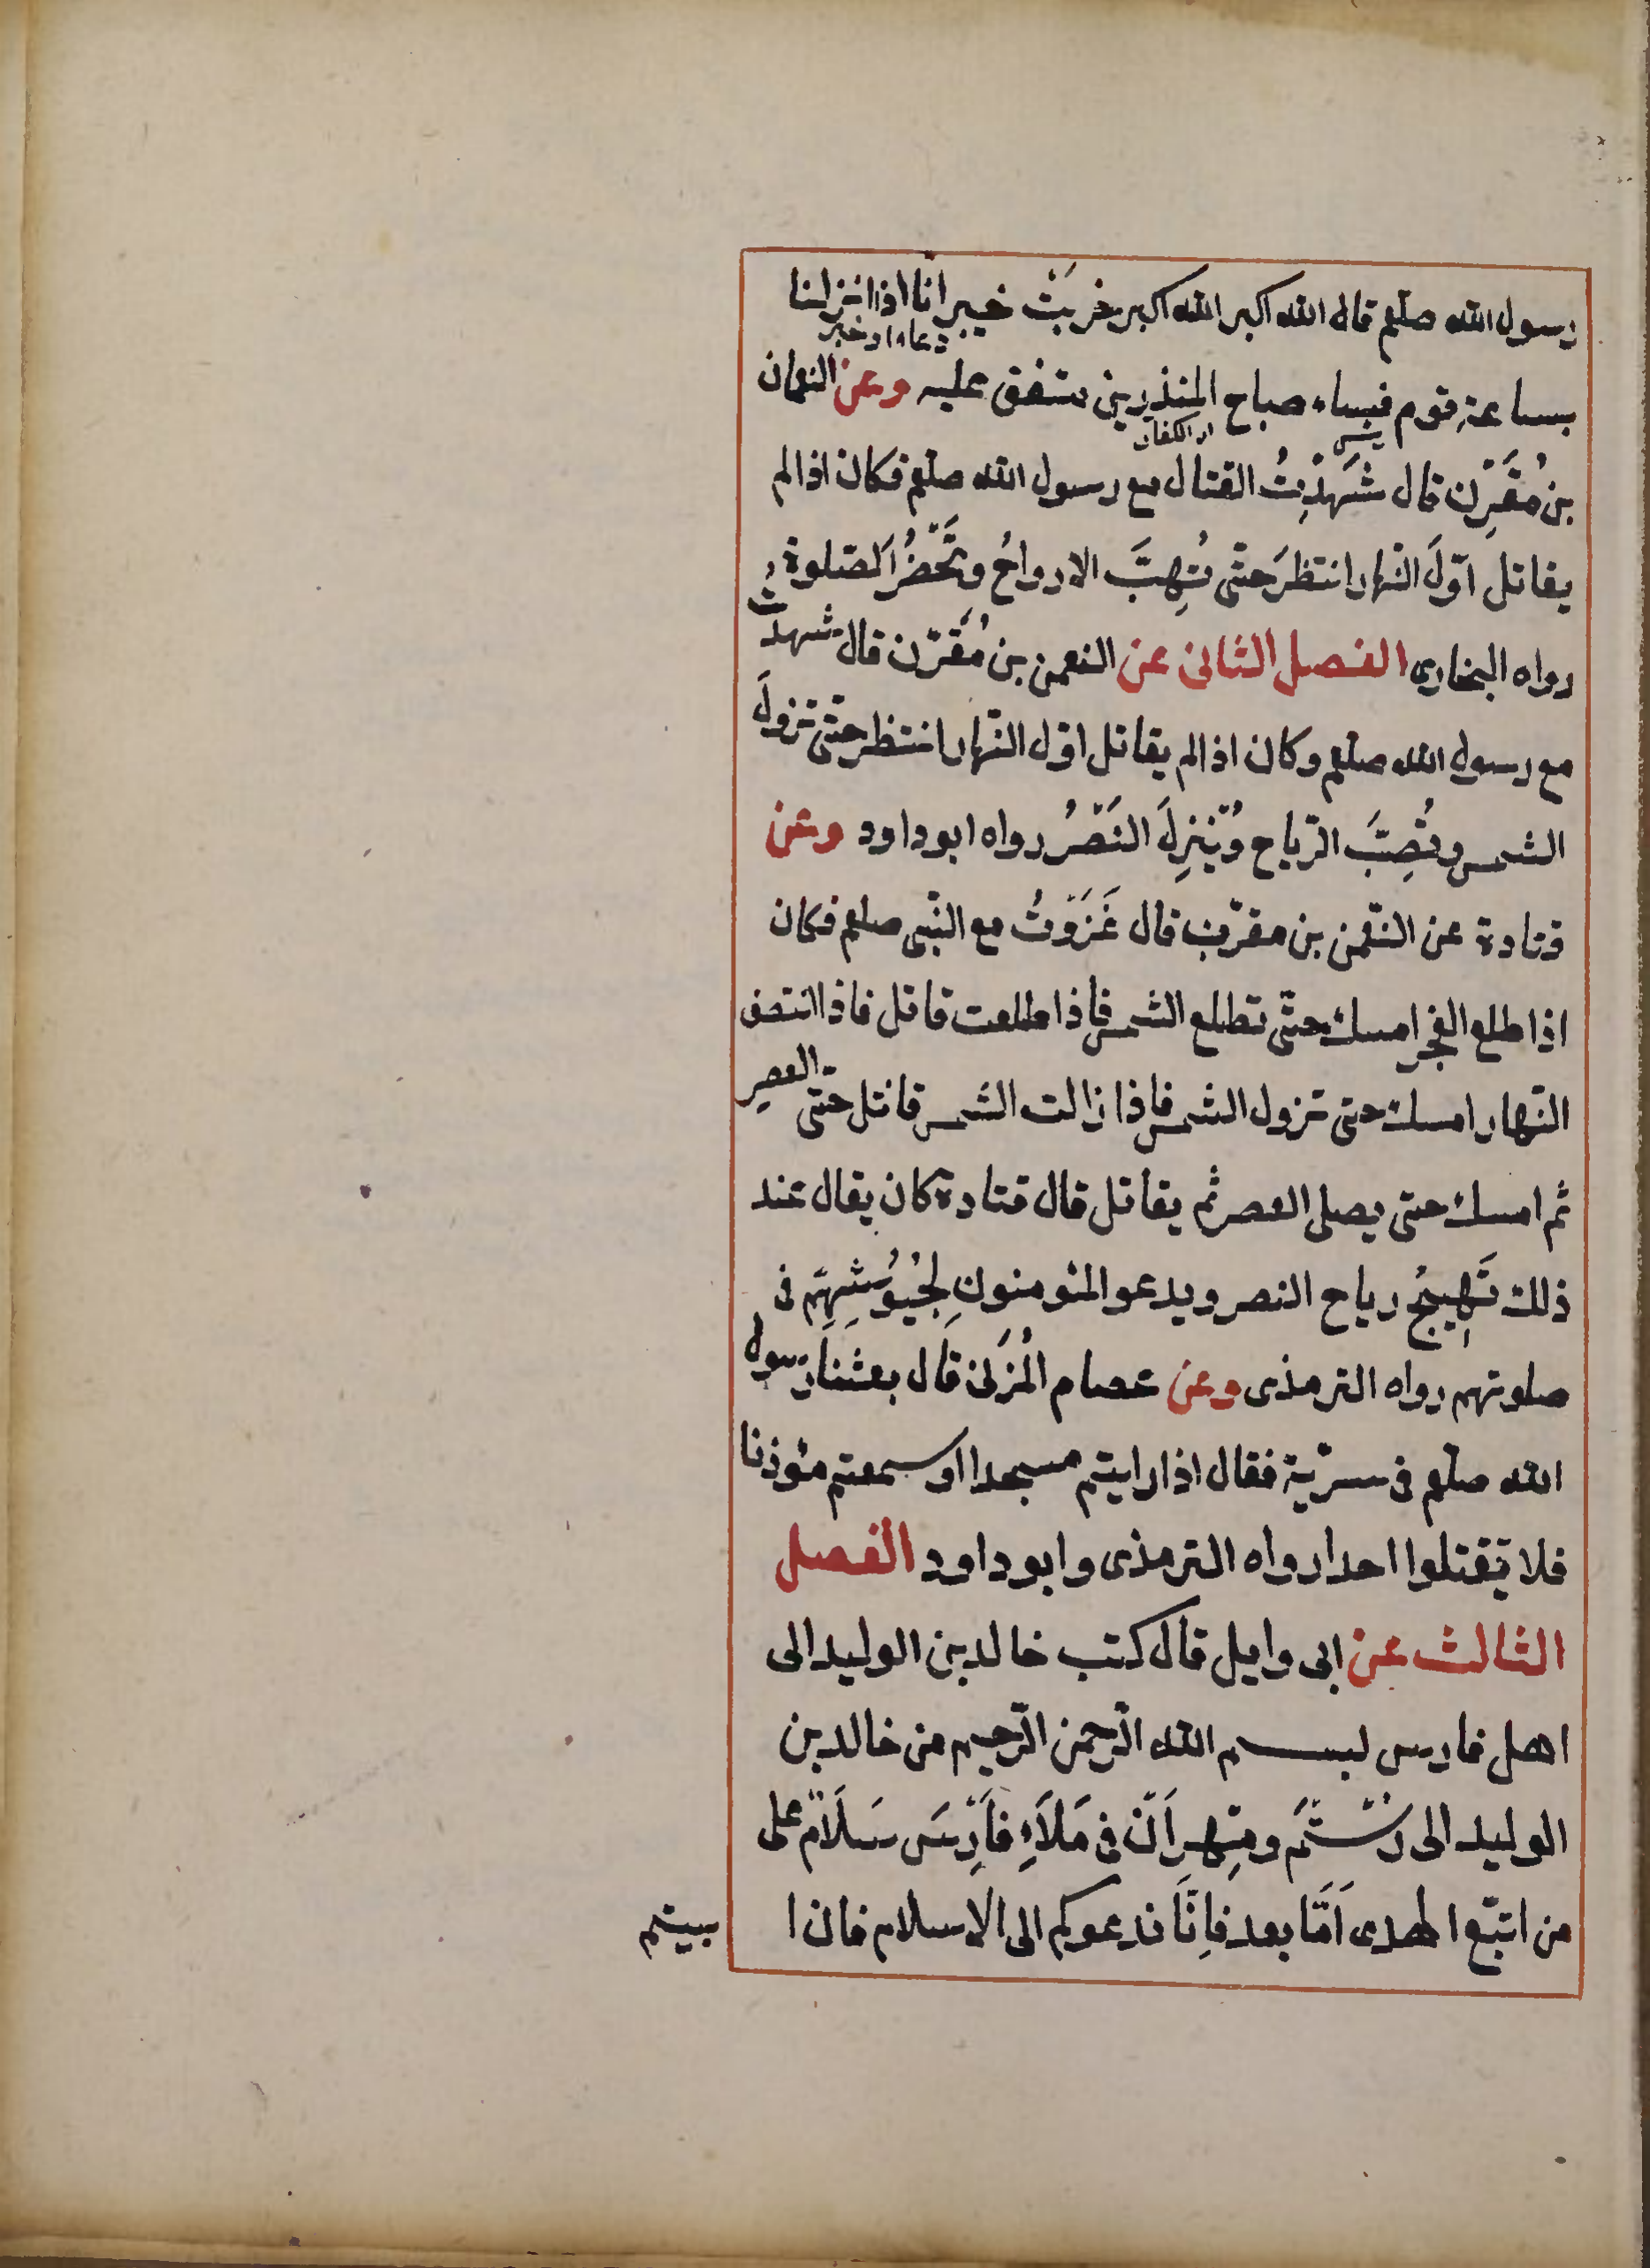 رسول الله صلعم قال الله اكبر الله اكبر خَرِبَتْ خيبر انا اذا انزلنا
دعاء او خبر
بساعة قوم فساء صباح المنذرين متفق عليه وعن النعمان
بئس
اى الكفار
بن مُقَرِّن قال شَهِدْتُ القتال مع رسول الله صلعم فكان اذا لم
يقاتل اوّلَ النّهار انتظرَ حتّى تُهِبَّ الارواحُ وتَحْضُرَ الصّلوة
رواه البخارى الفصل الثانى عن النعمن بن مُقَرّن قال شهدتُ
مع رسول الله صلعم وكان اذا لم يقاتل اوّل النّهار انتظر حتّى تزولَ
الشمس وتُهِبَّ الرّياح وتُنْزِلَ النَصْرُ رواه ابو داود وعن
قتادة عن النّعمن بن مقرّن قال غَزَوْتُ مع النّبى صلعم فكان
اذا طلع الفجر امسك حتّى تطلع الشمس فاذا طلعت قاتل فاذا انتصف
النّهار امسك حتى تزول الشمس فاذا زالت الشمس قاتل حتّى العصر
ثم امسك حتى يصلى العصر ثم يقاتل قال قتادة كان يقال عند
ذلك تَهِيجُ رياح النصر ويدعو المئومنون لِجُيُوشِهِم فى
صلوتهم رواه الترمذى وعن عصام المُزَنى قال بعثنا رسول
الله صلعم فى سرّية فقال اذا رايتم مسجدا او سمعتم مئوذنا
فلا تقتلوا احدا رواه الترمذى وابو داود الفصل
الثالث عن ابى وايل قال كتب خالد بن الوليد الى
اهل فارس لبسم الله الرّحمن الرّحيم من خالد بن
الوليد الى رُسْتَم ومِهرَانَ فى مَلَاءِ فَارِسَ سَلَامٌ على
من اتبّع الهدى اَمَّا بعد فاِنَّا ندعوكم الى الاسلام فان ا
بيتم